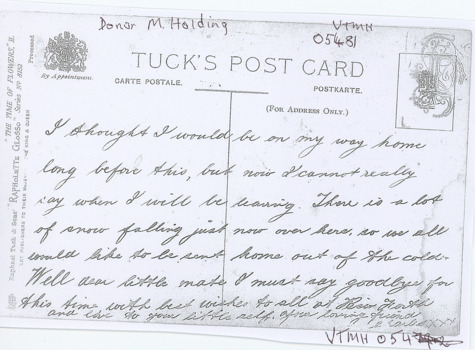 Donor M. Holding
VTMH
05481
By Appointment.
TUCK'S POST CARD
CARTE POSTALE.
POSTKARTE.
(FOR ADDRESS ONLY.)
"THE TIME OF FLOWERS" II.
Raphael Tuck & Sons' "RAPHOLETTE GLOSSO"
I thought I would be on my way home
long before this, but now I cannot really
say when I will be leaving. There is a lot
of snow falling just now over here, so we all
would like to be sent home out of the cold.
Well dear little mate I must say goodbye for
this time with best wishes to all at
and love to your little self. your loving friend
xxx
VTMH 054